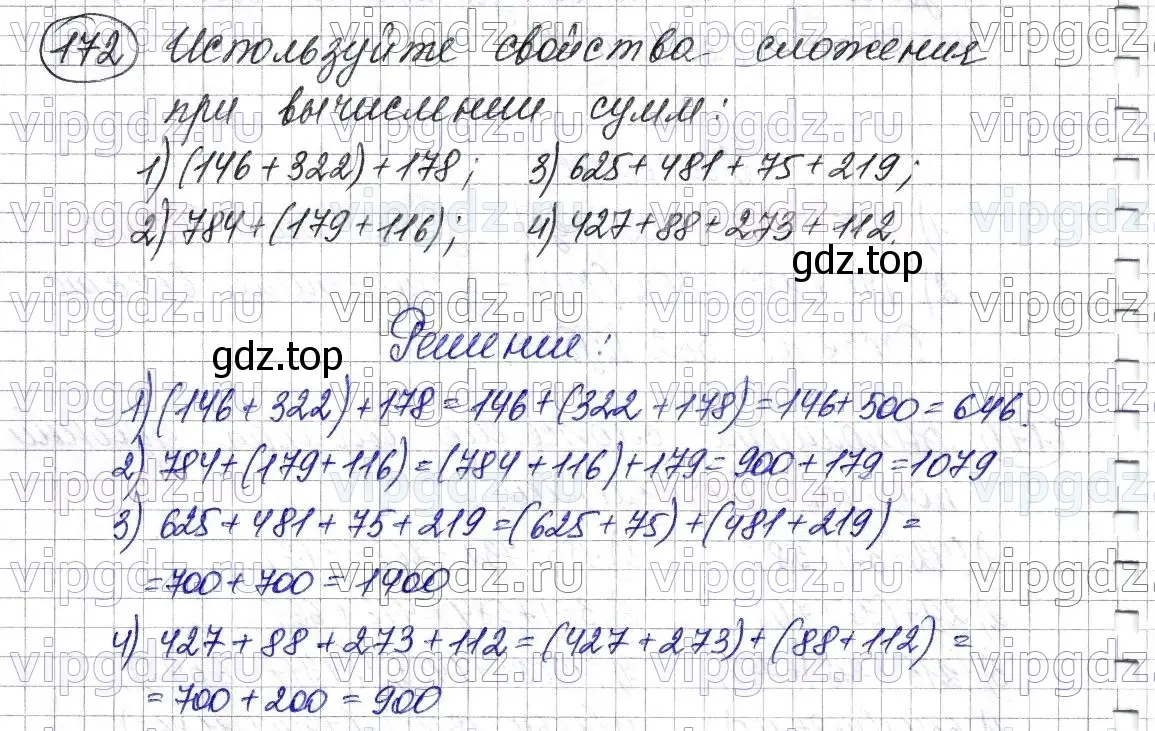 172 Используйте свойства сложения
при вычислении сумм:
1) (146 + 322) + 178; 3) 625 + 481 + 75 + 219;
2) 784 + (179 + 116); 4) 427 + 88 + 273 + 112.
gdz.top
Решение:
gdz.top
1) (146 + 322) + 178 = 146 + (322 + 178) = 146 + 500 = 646.
2) 784 + (179 + 116) = (784 + 116) + 179 = 900 + 179 = 1079
3) 625 + 481 + 75 + 219 = (625 + 75) + (481 + 219) =
= 700 + 700 = 1400
4) 427 + 88 + 273 + 112 = (427 + 273) + (88 + 112) =
= 700 + 200 = 900
vipgdz.ru